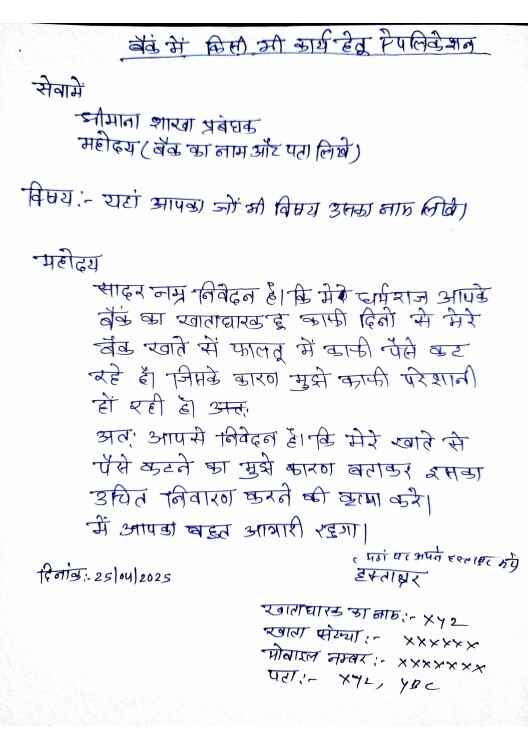 बैकं में किसी भी कार्य हेतू ऐपलिकेशन
सेवामें
श्रीमाना शाखा प्रबंधक
महोदय (बैंक का नाम और पता लिखें)
विषय:- यहां आपका जों भी विषय उसका नाम लिखे)
महोदय
सादर नम्र निवेदन है। कि मेरे धर्मराज आपके
बैंक का खाताधारक हू काफी दिनों से मेरे
बैंक खाते से फालतू में काफी पैसे कट
रहे है। जिसके कारण मुझे काफी परेशानी
हों रही है। अतः
अतः आपसे निवेदन है। कि मेरे खाते से
पैसे कटने का मुझे कारण बताकर इसका
उचित निवारण करने की कृपा करे।
में आपका बहुत आभारी रहुगा।
( यहां पर अपने हस्ताक्षर करें)
दिनांक:- 25/04/2025 हस्ताक्षर
खाताधारक का नाम:- XYZ
खाता संख्या:- XXXXXX
मोबाइल नम्बर:- XXXXXXX
पता:- XYZ, YBC